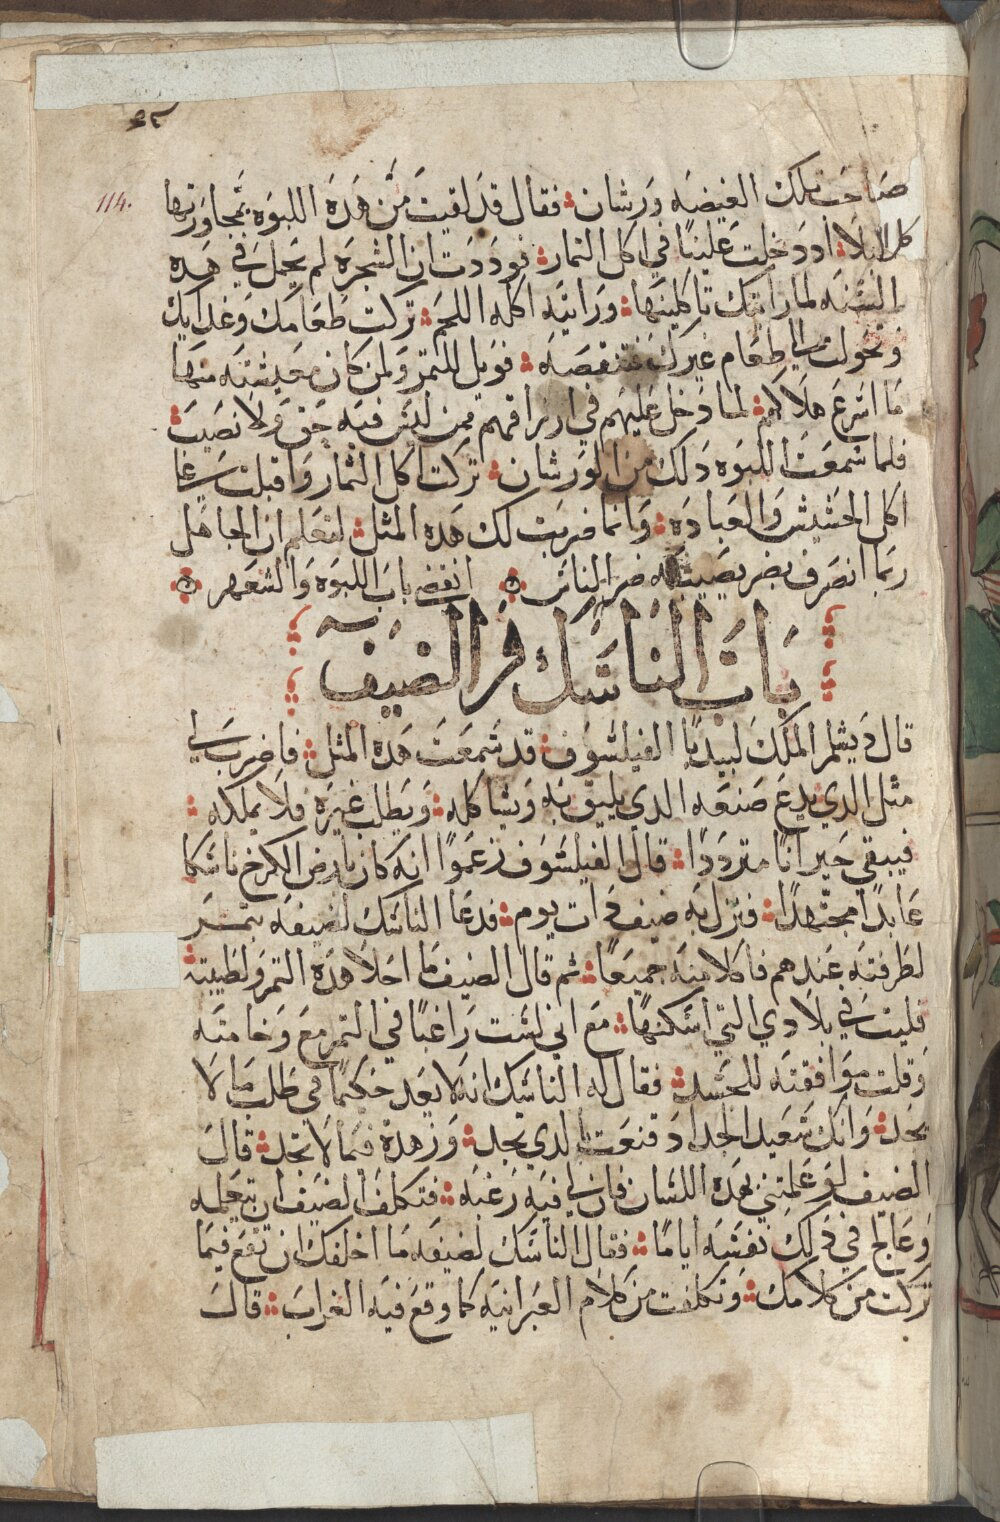 114.
صاحب تلك الغيضه ورشان فقال قد لقيت من هذه اللبوه بمجاورتها
كل البلا اد دخلت علينا في اكل الثمار فوددت ان الشجره لم تحمل في هده
السنه لما رايتك تاكلينها ورايته اكله اللحم تركت طعامك وغداك
وتحولت الى طعام غيرك فتنقصه فويل للثمر ولمن كان معيشته منها
ما اسرع هلاكهم لما دخل عليهم في ارزاقهم من ليس فيه حق ولا نصيب
فلما سمعت اللبوه دلك من الورشان تركت اكل الثمار واقبلت على
اكل الحشيش والعباده وانما ضربت لك هده المثل لتعلم ان الجاهل
ربما انصرف بضر يصيبه ضر الناس انقضى باب اللبوه والشعهر
باب الناسك والضيف
قال ديشلم الملك لبيدبا الفيلسوف قد سمعت هده المثل فاضرب لي
مثل الدي يدع صنعه الدي يليق به ويشاكله ويطلب غيره فلا يملكه
فيبقى حيرانا مترددا قال الفيلسوف زعموا انه كان بارض الكرخ ناسكا
عابدا مجتهدا فنزل به ضيف دات يوم فدعا الناسك لضيفه بتمر
لطرفته عندهم فاكلا منه جميعا ثم قال الضيف ما احلا هده التمر ولطيبته
فليت في بلادي التي اسكنها مع اني لست راغبا في التمر مع وخامته
وقلت موافقته للجسد فقال له الناسك انه لا يعد حكيما في طلب ما لا
يجد وانك سعيد الجد اد قنعت بالدي يجد وزهدة فيما لا تجد قال
الضيف لو علمتني بهده اللسان فان لي فيه رغبه فتكلف الضيف ان يتعلمه
وعالج في دلك نفسه اياما فقال الناسك لضيفه ما اخلفك ان تقع فيما
تركت من كلامك وتكلفت من كلام العبرانيه كما وقع فيه الغراب قال